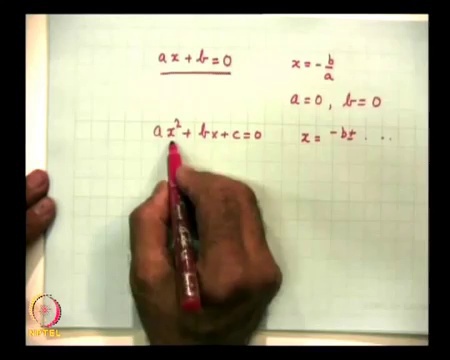 ax + b = 0 x = - b/a
a = 0, b = 0
ax² + bx + c = 0 x = -b± . . .
NPTEL